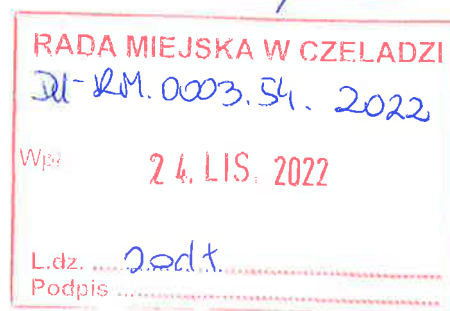 RADA MIEJSKA W CZELADZI
RM. 0003. 54. 2022
Wpł
24. LIS. 2022
L.dz. ..........
Podpis ..........